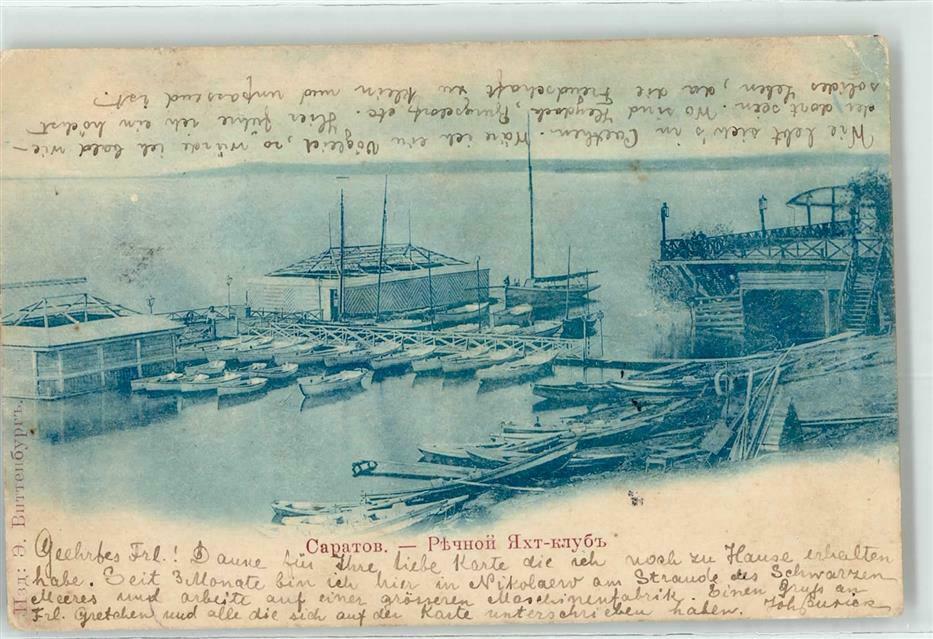 Geehrtes Frl.! Danke für Ihre liebe Karte die ich noch zu Hause erhalten
habe. Seit 3 Monate bin ich hier in Nikolaew am Strande des Schwarzen
Meeres und arbeite auf einer grösseren Maschinenfabrik. Einen Gruss an
Frl. Gretchen und alle die sich auf der Karte unterschrieben haben. Joh
Wie lebt sich's in Wäre ich ein Vöglein, so würde ich bald wie-
der dort sein. Wo sind etc. Hier führe ich ein höchst
solides Leben, da die Freudschaft zu klein und unpassend ist.
Саратов. — Рѣчной Яхт-клубъ
Изд: Э. Виттенбургъ.